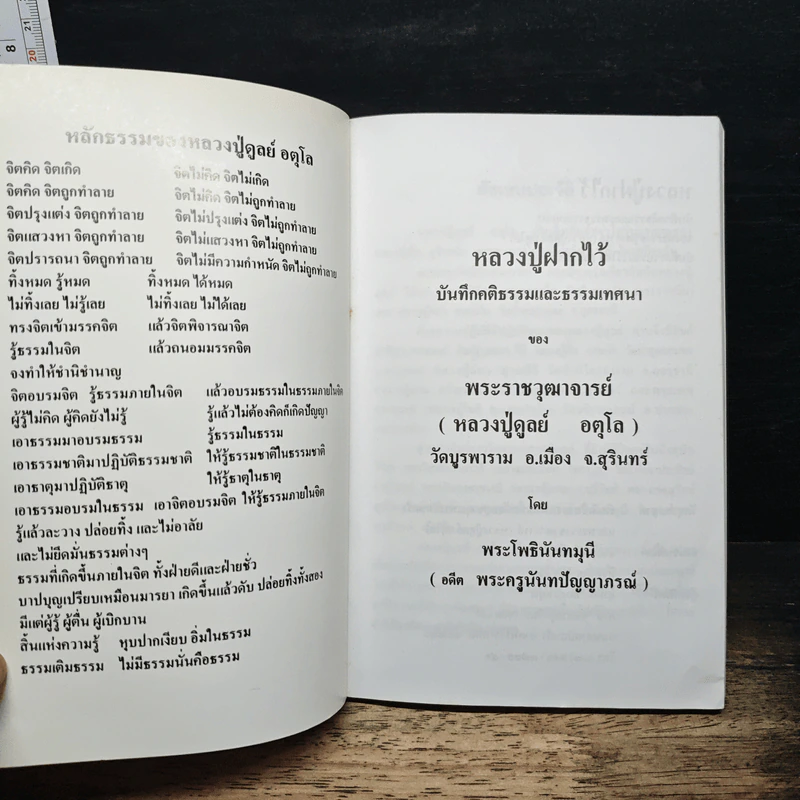 8
20
21
หลักธรรมของหลวงปู่ดูลย์ อตุโล
จิตคิด จิตเกิด จิตไม่คิด จิตไม่เกิด
จิตคิด จิตถูกทำลาย จิตไม่คิด จิตไม่ถูกทำลาย
จิตปรุงแต่ง จิตถูกทำลาย จิตไม่ปรุงแต่ง จิตไม่ถูกทำลาย
จิตแสวงหา จิตถูกทำลาย จิตไม่แสวงหา จิตไม่ถูกทำลาย
จิตปรารถนา จิตถูกทำลาย จิตไม่มีความกำหนัด จิตไม่ถูกทำลาย
ทิ้งหมด รู้หมด ทิ้งหมด ได้หมด
ไม่ทิ้งเลย ไม่รู้เลย ไม่ทิ้งเลย ไม่ได้เลย
ทรงจิตเข้ามรรคจิต แล้วจิตพิจารณาจิต
รู้ธรรมในจิต แล้วถนอมมรรคจิต
จงทำให้ชำนิชำนาญ
จิตอบรมจิต รู้ธรรมภายในจิต แล้วอบรมธรรมในธรรมภายในจิต
ผู้รู้ไม่คิด ผู้คิดยังไม่รู้ รู้แล้วไม่ต้องคิดก็เกิดปัญญา
เอาธรรมมาอบรมธรรม รู้ธรรมในธรรม
เอาธรรมชาติมาปฏิบัติธรรมชาติ ให้รู้ธรรมชาติในธรรมชาติ
เอาธาตุมาปฏิบัติธาตุ ให้รู้ธาตุในธาตุ
เอาธรรมอบรมในธรรม เอาจิตอบรมจิต ให้รู้ธรรมภายในจิต
รู้แล้วละวาง ปล่อยทิ้ง และไม่อาลัย
และไม่ยึดมั่นธรรมต่างๆ
ธรรมที่เกิดขึ้นภายในจิต ทั้งฝ่ายดีและฝ่ายชั่ว
บาปบุญเปรียบเหมือนมารยา เกิดขึ้นแล้วดับ ปล่อยทิ้งทั้งสอง
มีแต่ผู้รู้ ผู้ตื่น ผู้เบิกบาน
สิ้นแห่งความรู้ หุบปากเงียบ อิ่มในธรรม
ธรรมเติมธรรม ไม่มีธรรมนั่นคือธรรม
หลวงปู่ฝากไว้
บันทึกคติธรรมและธรรมเทศนา
ของ
พระราชวุฒาจารย์
( หลวงปู่ดูลย์ อตุโล )
วัดบูรพาราม อ.เมือง จ.สุรินทร์
โดย
พระโพธินันทมุนี
( อดีต พระครูนันทปัญญาภรณ์ )